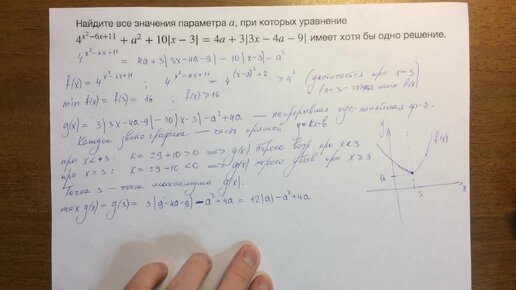 Найдите все значения параметра a, при которых уравнение
4^{x²−6x+11} + a² + 10|x − 3| = 4a + 3|3x − 4a − 9| имеет хотя бы одно решение.
4^{x²-6x+11} = 4a + 3|3x-4a-9| - 10|x-3| - a²
f(x) = 4^{x²-6x+11} ; 4^{x²-6x+11} = 4^{(x-3)²+2} ≥ 4² (достигается при x=3)
min f(x) = f(3) = 16 ; f(x) ≥ 16 (x=3 - точка min f(x)
g(x) = 3|3x-4a-9| - 10|x-3| - a²+4a — непрерывная кус-линейная ф-я.
Каждое звено графика — часть прямой y=kx+b
при x<3: k = ±9+10>0 ⟹ g(x) строго возр при x<3
при x≥3: k = ±9-10<0 ⟹ g(x) строго убыв при x≥3
Точка 3 - точка максимума g(x).
max g(x) = g(3) = 3|9-4a-9| - a²+4a = 12|a| - a²+4a
y
f(x)
16
3
x